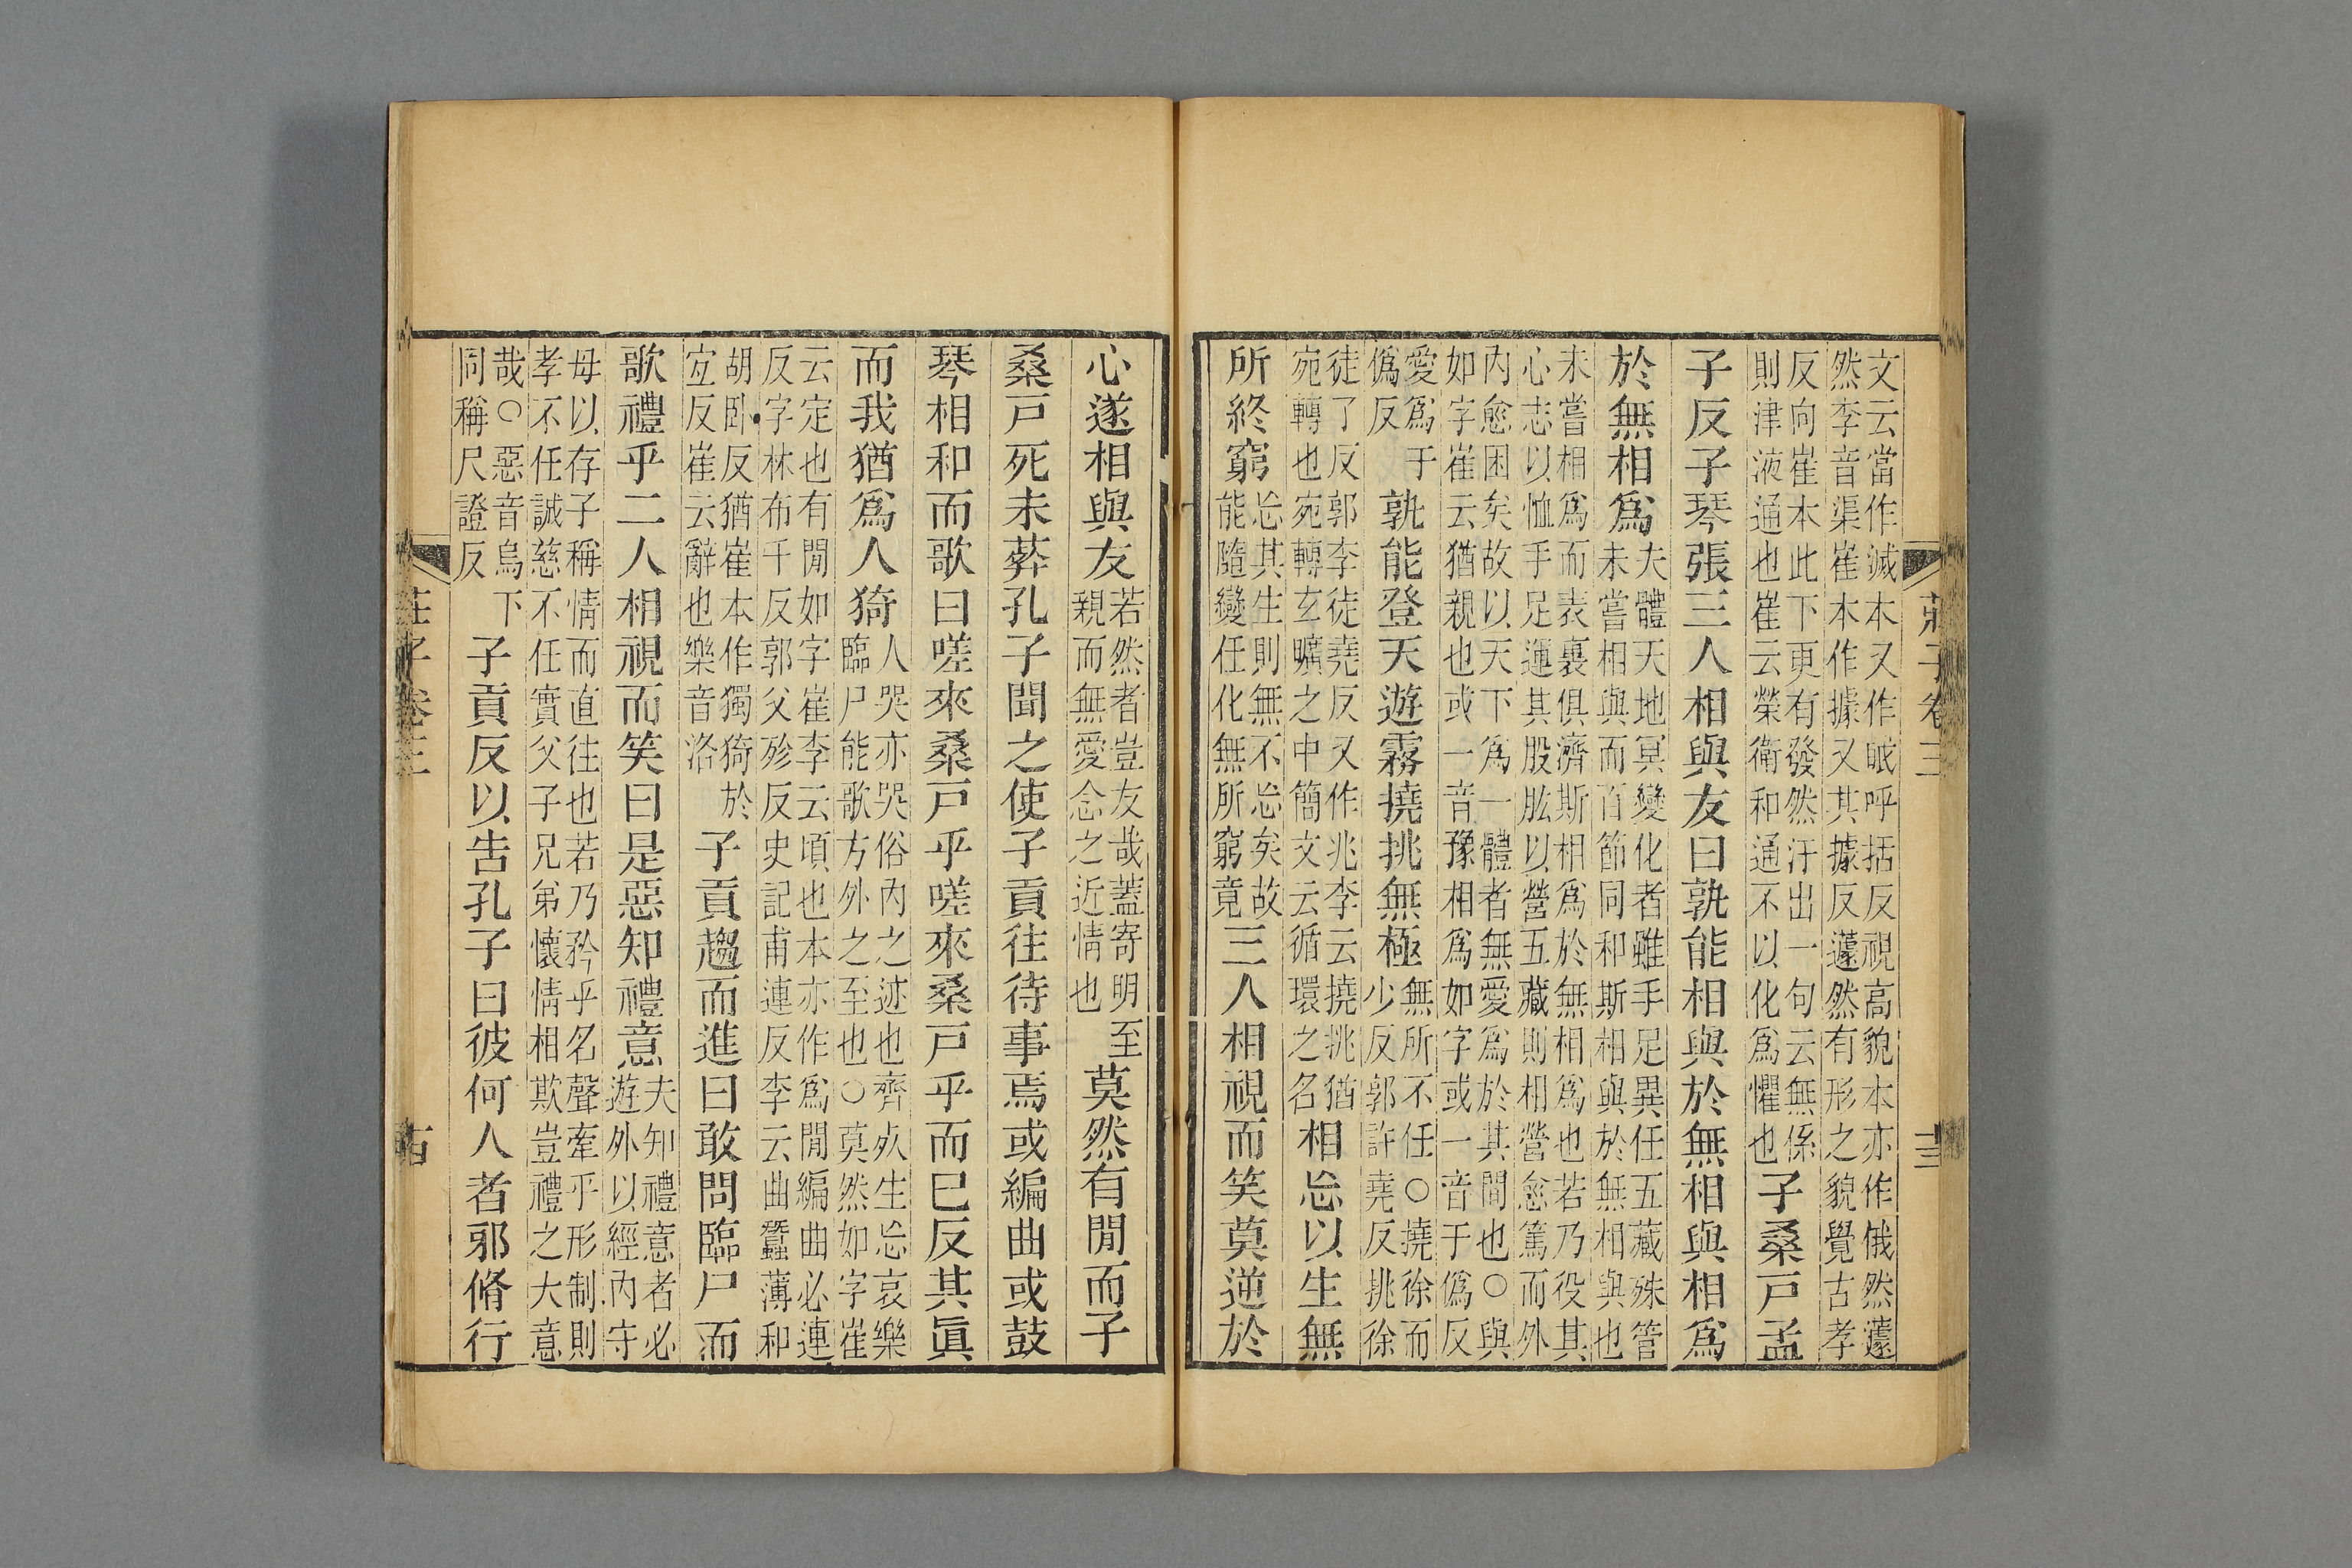 莊子卷三
十三
文云當作滅本又作眓呼括反視高貌本亦作俄然蘧
然李音渠崔本作據又其據反蘧然有形之貌覺古孝
反向崔本此下更有發然汗出一句云無係
則津液通也崔云榮衛和通不以化爲懼也
子桑戶孟
子反子琴張三人相與友曰孰能相與於無相與相爲
於無相爲
夫體天地冥變化者雖手足異任五藏殊管
未嘗相與而百節同和斯相與於無相與也
未嘗相爲而表裏俱濟斯相爲於無相爲也若乃役其
心志以恤手足運其股肱以營五藏則相營愈篤而外
內愈困矣故以天下爲一體者無愛爲於其間也○與
如字崔云猶親也或一音豫相爲如字或一音于僞反
愛爲于
僞反
孰能登天遊霧撓挑無極
無所不任○撓徐而
少反郭許堯反挑徐
徒了反郭李徒堯反又作兆李云撓挑猶
宛轉也宛轉玄曠之中簡文云循環之名
相忘以生無
所終窮
忘其生則無不忘矣故
能隨變任化無所窮竟
三人相視而笑莫逆於
心遂相與友
若然者豈友哉蓋寄明至
親而無愛念之近情也
莫然有閒而子
桑戶死未葬孔子聞之使子貢往待事焉或編曲或鼓
琴相和而歌曰嗟來桑戶乎嗟來桑戶乎而已反其眞
而我猶爲人猗
人哭亦哭俗內之迹也齊死生忘哀樂
臨尸能歌方外之至也○莫然如字崔
云定也有閒如字崔李云頃也本亦作爲閒編曲必連
反字林布千反郭父殄反史記甫連反李云曲蠶薄和
胡臥反猶崔本作獨猗於
宜反崔云辭也樂音洛
子貢趨而進曰敢問臨尸而
歌禮乎二人相視而笑曰是惡知禮意
夫知禮意者必
遊外以經內守
母以存子稱情而直往也若乃矜乎名聲牽乎形制則
孝不任誠慈不任實父子兄弟懷情相欺豈禮之大意
哉○惡音烏下
同稱尺證反
子貢反以告孔子曰彼何人者邪脩行
莊子卷三